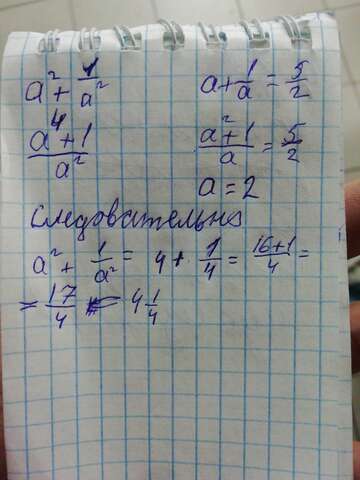 a² + 1/a²    a + 1/a = 5/2
(a⁴ + 1)/a²    (a² + 1)/a = 5/2
a = 2
следовательно
a² + 1/a² = 4 + 1/4 = (16+1)/4 =
= 17/4 = 4 1/4